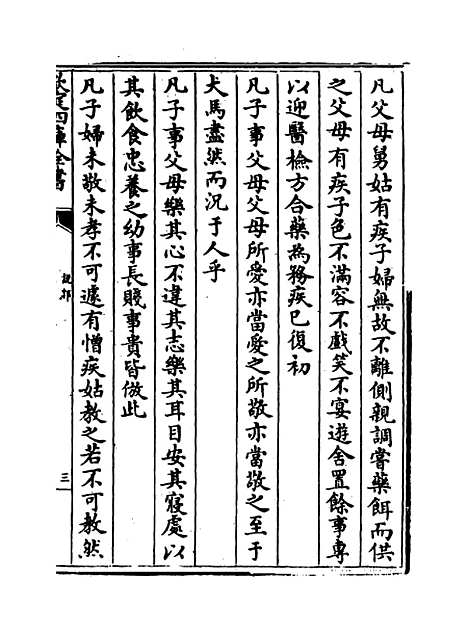 凡父母舅姑有疾子婦無故不離側親調嘗藥餌而供
之父母有疾子色不滿容不戲笑不宴遊舍置餘事専
以迎醫檢方合藥為務疾已復初
凡子事父母父母所愛亦當愛之所敬亦當敬之至于
犬馬盡然而況于人乎
凡子事父母樂其心不違其志樂其耳目安其寢處以
其飲食忠養之幼事長賤事貴皆倣此
凡子婦未敬未孝不可遽有憎疾姑教之若不可教然
欽定四庫全書
說郛
三